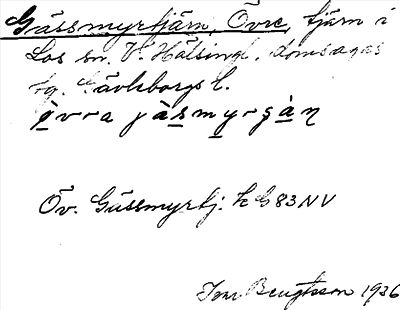 Gässmyrtjärn, Övre, tjärn i
Los sn, V. Hälsingl. domsagas
tg. Gävleborgs l.
ö̱vra jàs̱my̱rgà̱ṉ
Öv. Gässmyrtj. k G 83 NV
Bengtsson 1936